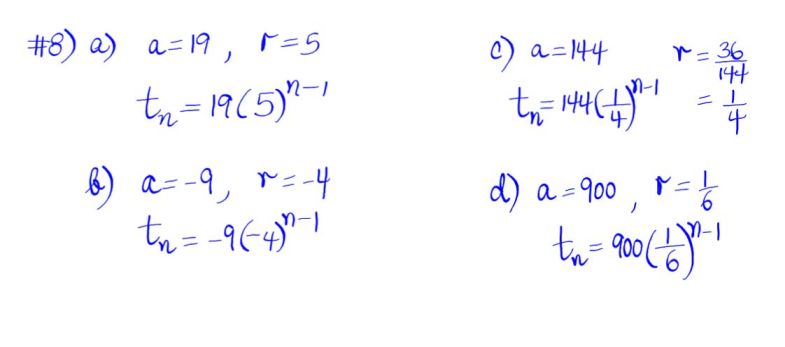 #8) a) a=19, r=5
tₙ=19(5)ⁿ⁻¹
b) a=-9, r=-4
tₙ=-9(-4)ⁿ⁻¹
c) a=144 r=36/144
tₙ=144(1/4)ⁿ⁻¹ =1/4
d) a=900, r=1/6
tₙ=900(1/6)ⁿ⁻¹